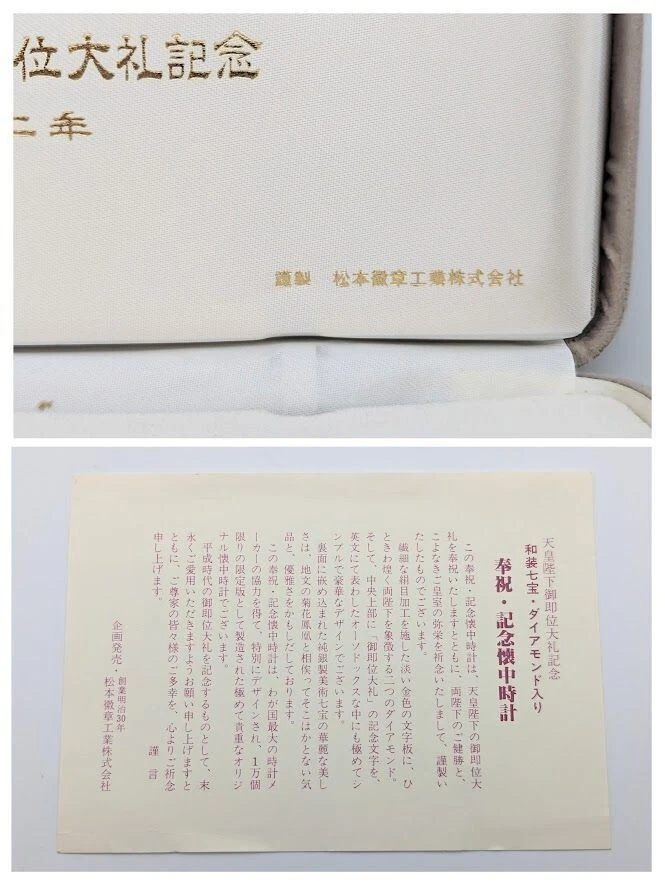 位大礼記念
二年
謹製　松本徽章工業株式会社
天皇陛下御即位大礼記念
和装七宝・ダイアモンド入り
奉祝・記念懐中時計
この奉祝・記念懐中時計は、天皇陛下の御即位大
礼を奉祝いたしますとともに、両陛下のご健勝と、
こよなきご皇室の弥栄を祈念いたしまして、謹製い
たしたものでございます。
繊細な絹目加工を施した淡い金色の文字板に、ひ
ときわ煌く両陛下を象徴する二つのダイアモンド。
そして、中央上部に「御即位大礼」の記念文字を、
英文にて表わしたオーソドックスな中にも極めてシ
ンプルで豪華なデザインでございます。
裏面に嵌め込まれた純銀製美術七宝の華麗な美し
さは、地文の菊花鳳凰と相俟ってそこはかとない気
品と、優雅さをかもしだしております。
この奉祝・記念懐中時計は、わが国最大の時計メ
ーカーの協力を得て、特別にデザインされ、1万個
限りの限定版として製造された極めて貴重なオリジ
ナル懐中時計でございます。
平成時代の御即位大礼を記念するものとして、末
永くご愛用いただきますようお願い申し上げますと
ともに、ご尊家の皆々様のご多幸を、心よりご祈念
申し上げます。
謹言
創業明治30年
企画発売・松本徽章工業株式会社